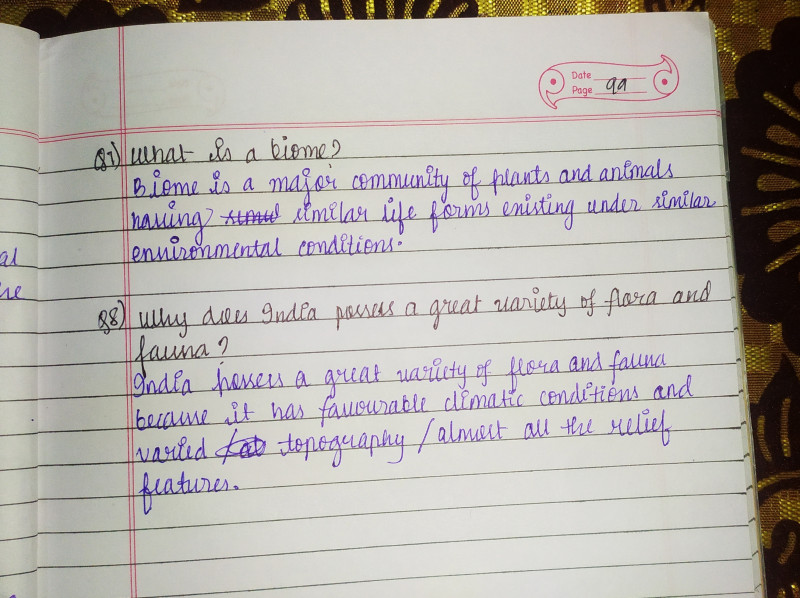 Date
Page 99
Q7) What is a biome?
Biome is a major community of plants and animals
having similar life forms existing under similar
environmental conditions.
Q8) Why does India possess a great variety of flora and
fauna?
India possess a great variety of flora and fauna
because it has favourable climatic conditions and
varied topography / almost all the relief
features.
al